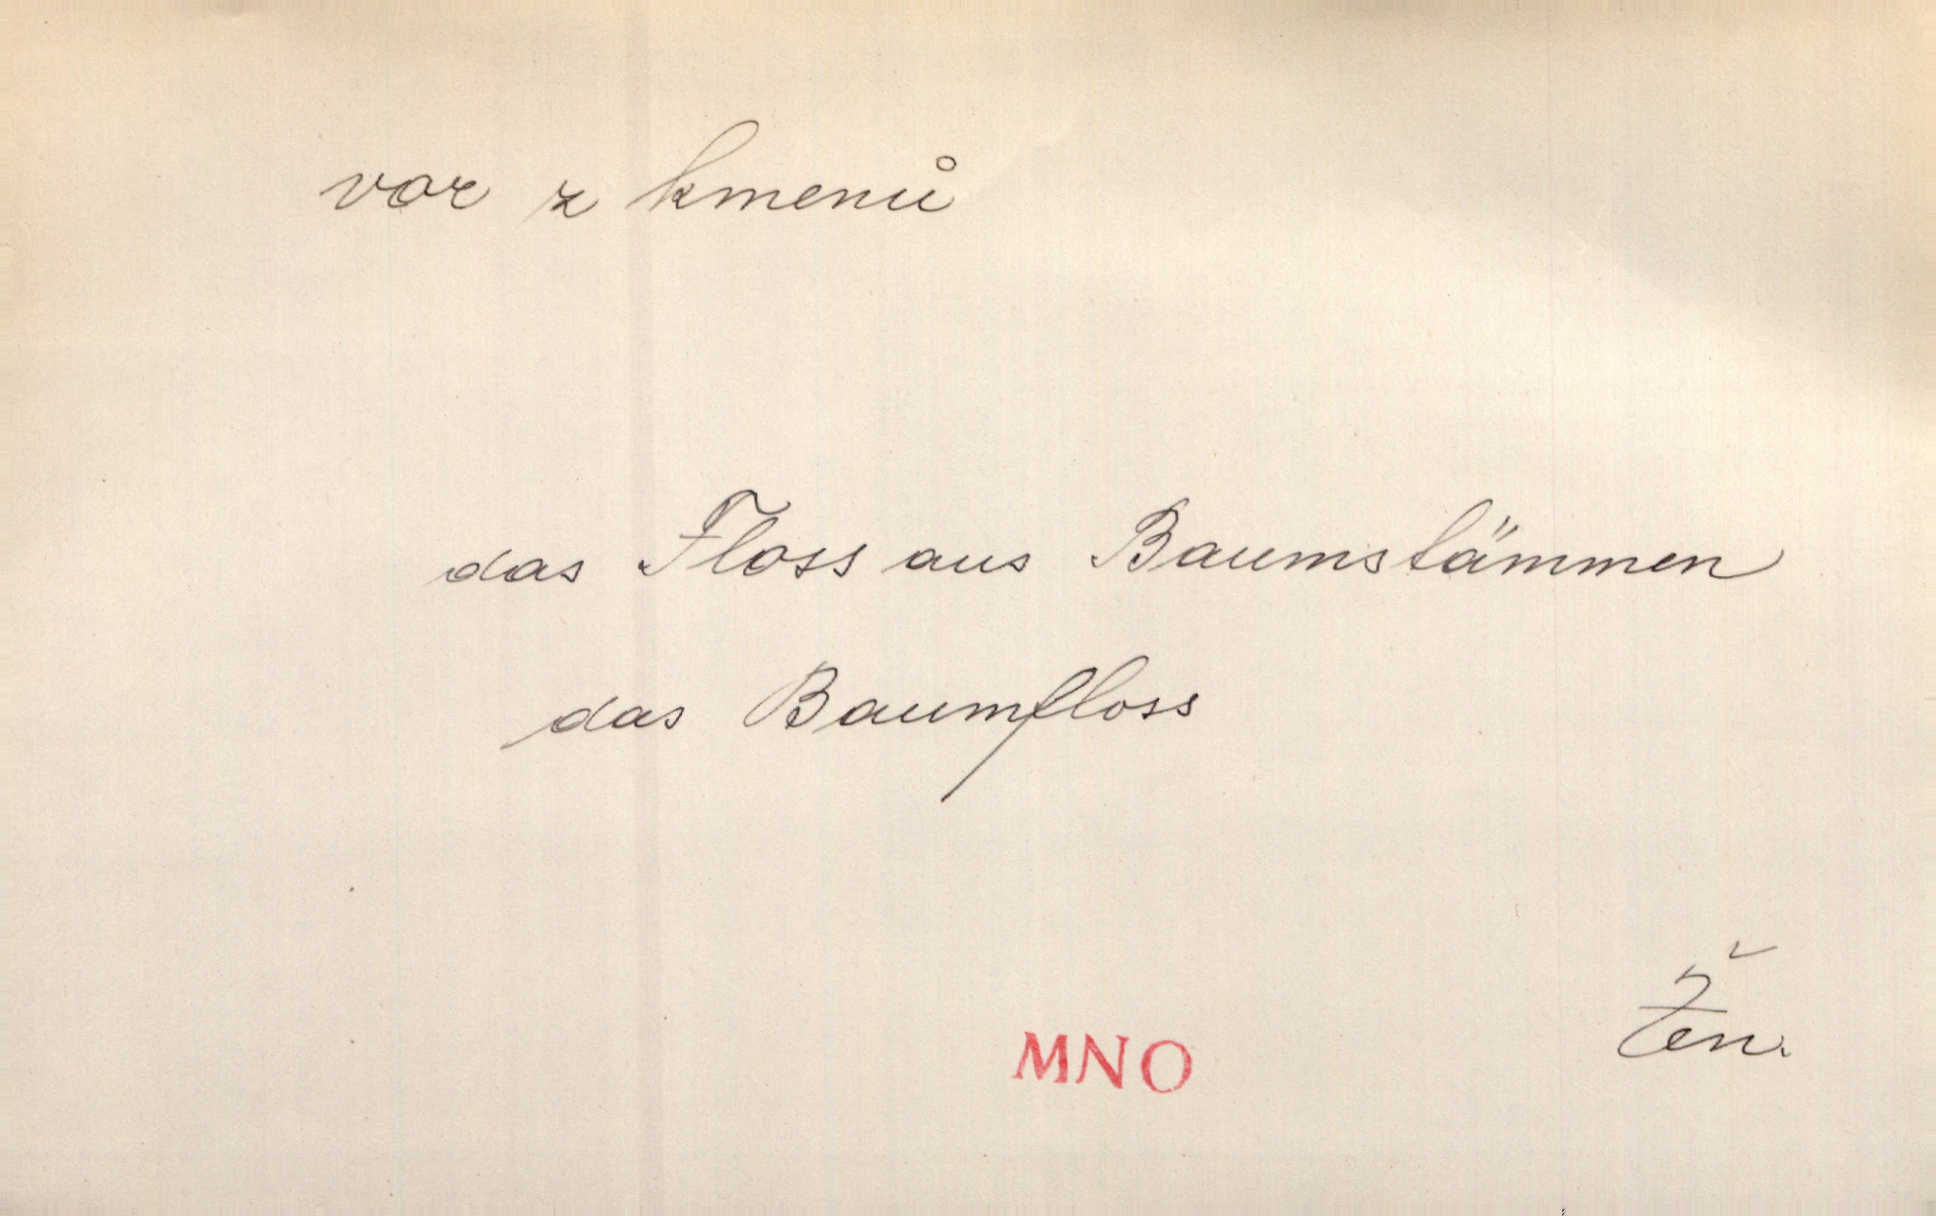 vor z kmenů
das Floss aus Baumstämmen
das Baumfloss
Žen.
MNO